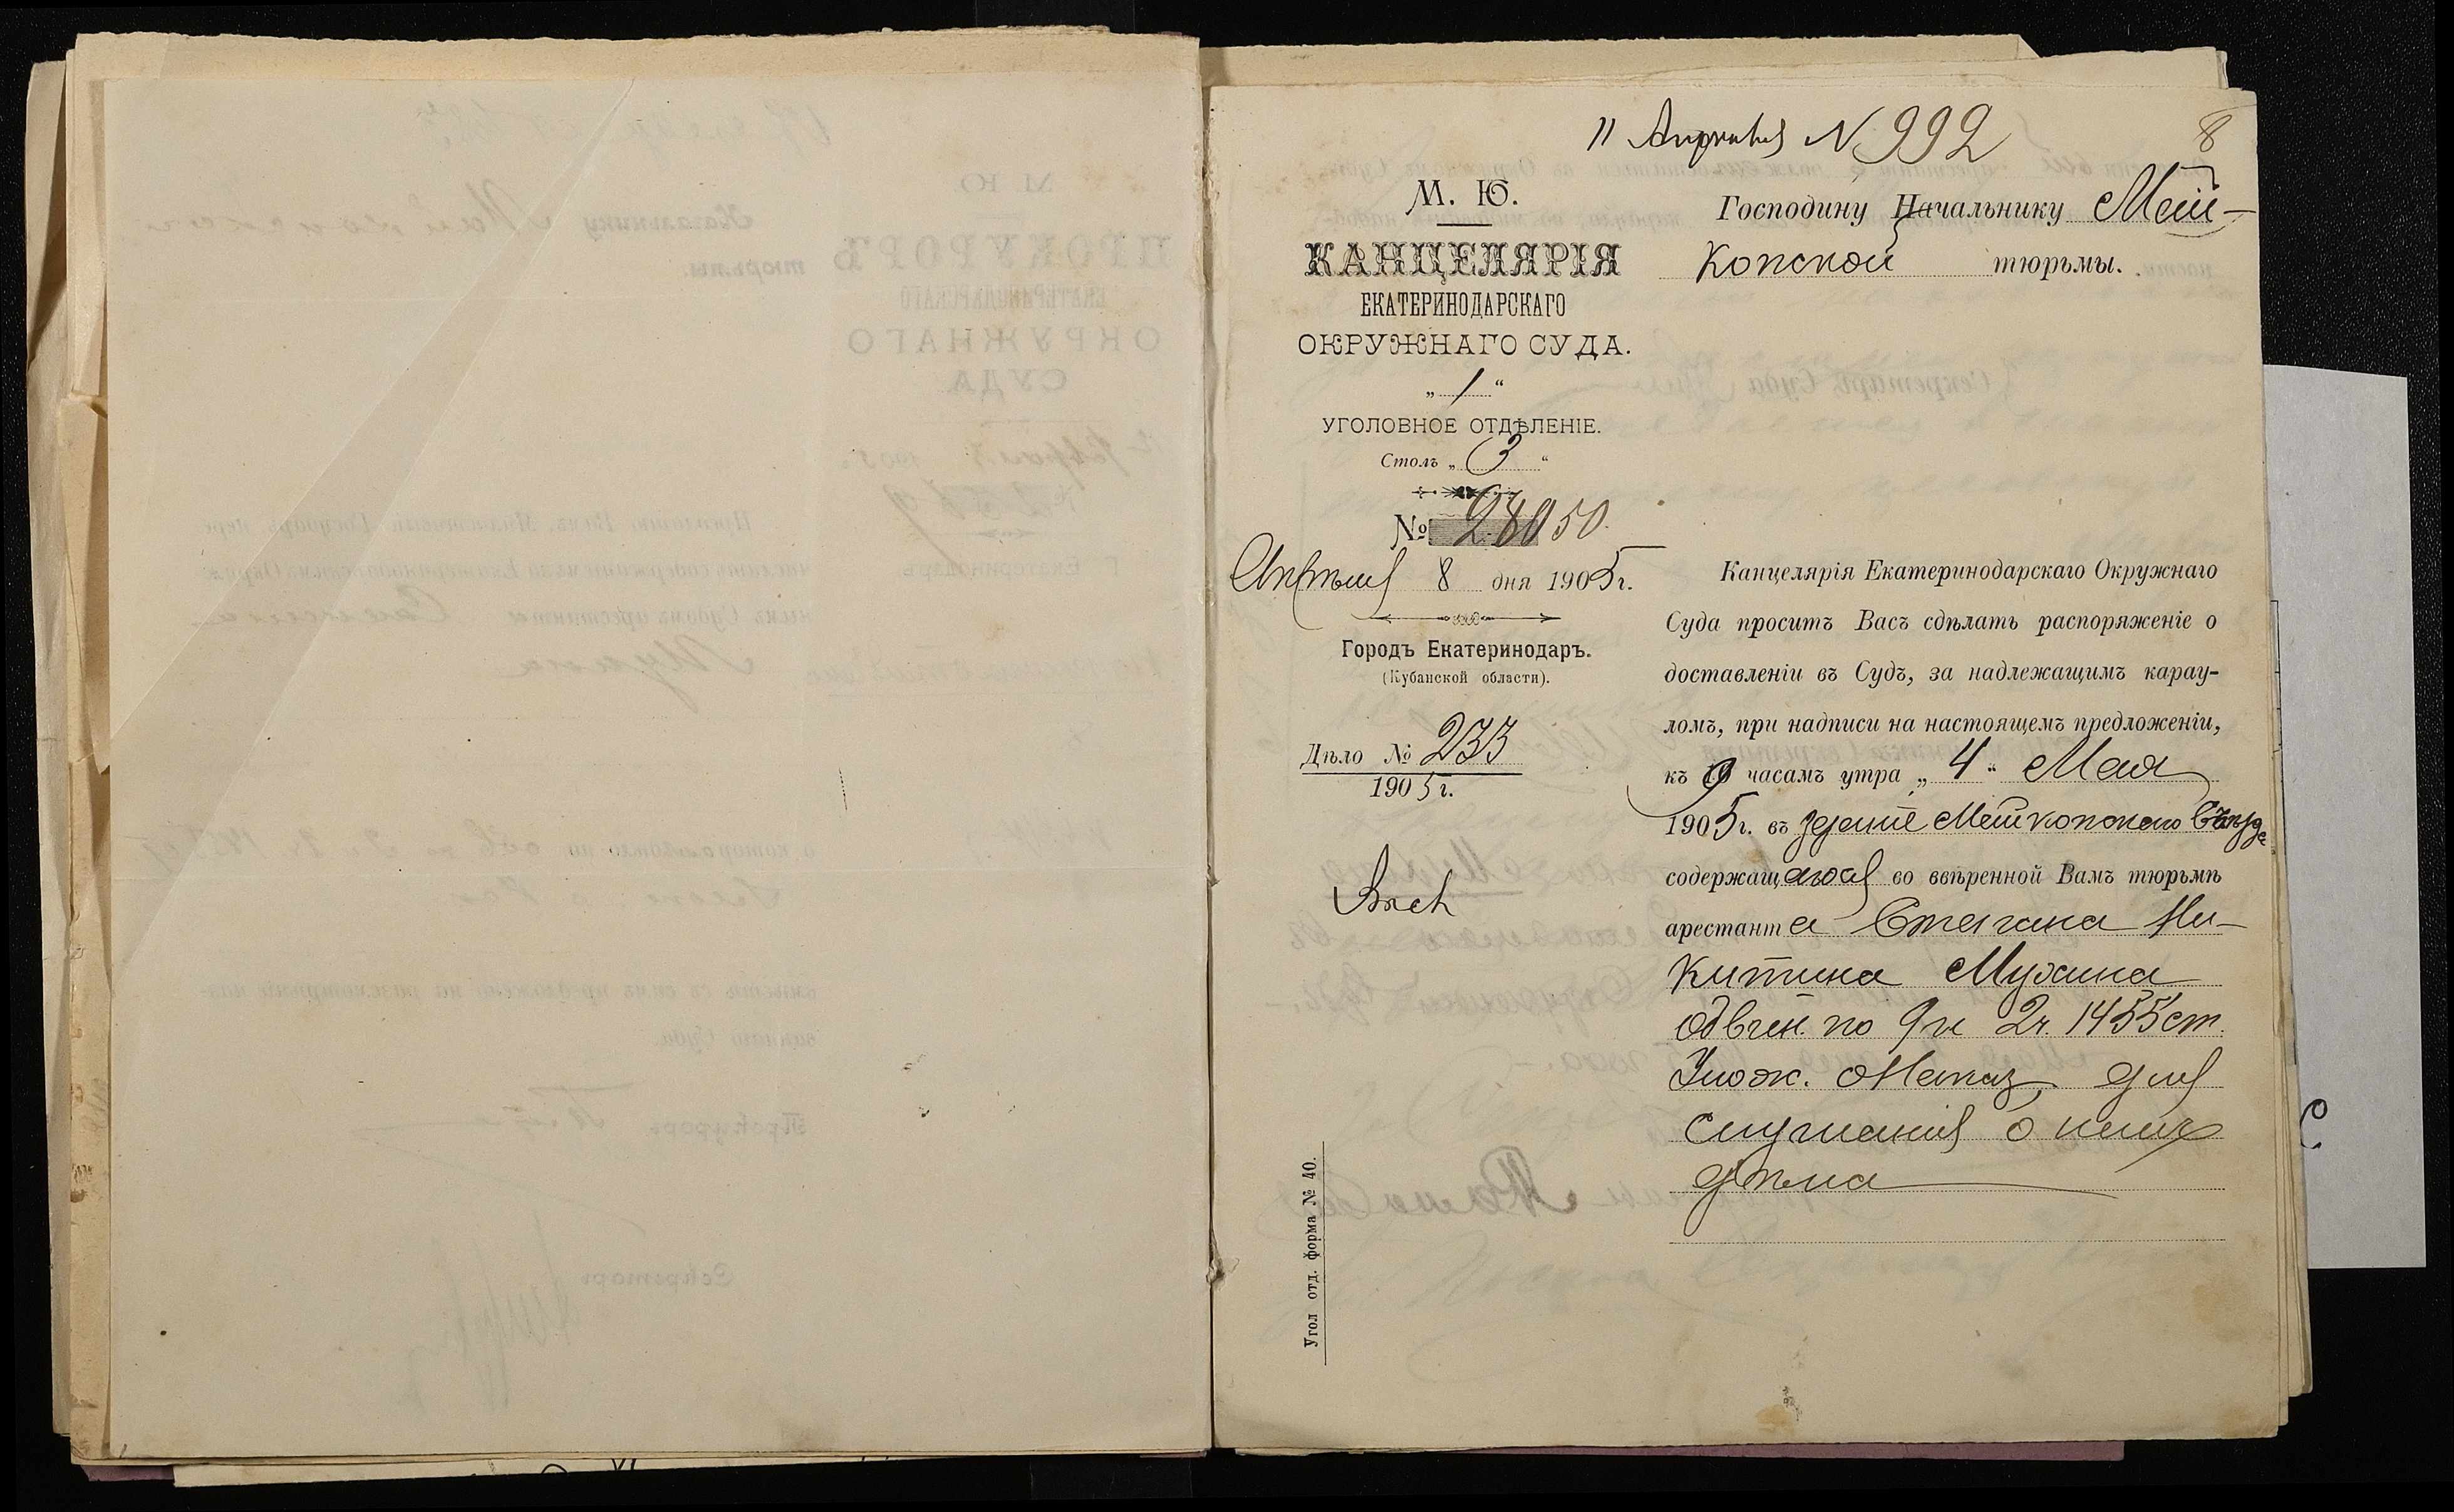 11 Апрѣля № 992
8
М. Ю.
КАНЦЕЛЯРІЯ
ЕКАТЕРИНОДАРСКАГО
ОКРУЖНАГО СУДА.
„ 1 “
УГОЛОВНОЕ ОТДѢЛЕНІЕ.
Столъ „ 3 “
№ 28050.
Апрѣля 8 дня 1905 г.
Городъ Екатеринодаръ.
(Кубанской области).
Дѣло № 233
1905 г.
Угол отд. форма № 40.
Господину Начальнику Май-
копской тюрьмы.
Канцелярія Екатеринодарскаго Окружнаго
Суда проситъ Васъ сдѣлать распоряженіе о
доставленіи въ Судъ, за надлежащимъ карау-
ломъ, при надписи на настоящемъ предложеніи,
къ 9 часамъ утра „ 4 “ Мая
1905 г. въ зданіе Майкопскаго
содержащагося во ввѣренной Вамъ тюрьмѣ
арестанта Степана Ни-
китина Мухина
обвин. по 9 и 2 ч. 1455 ст.
Улож. о Наказ, для
слушанія о немъ
дѣла